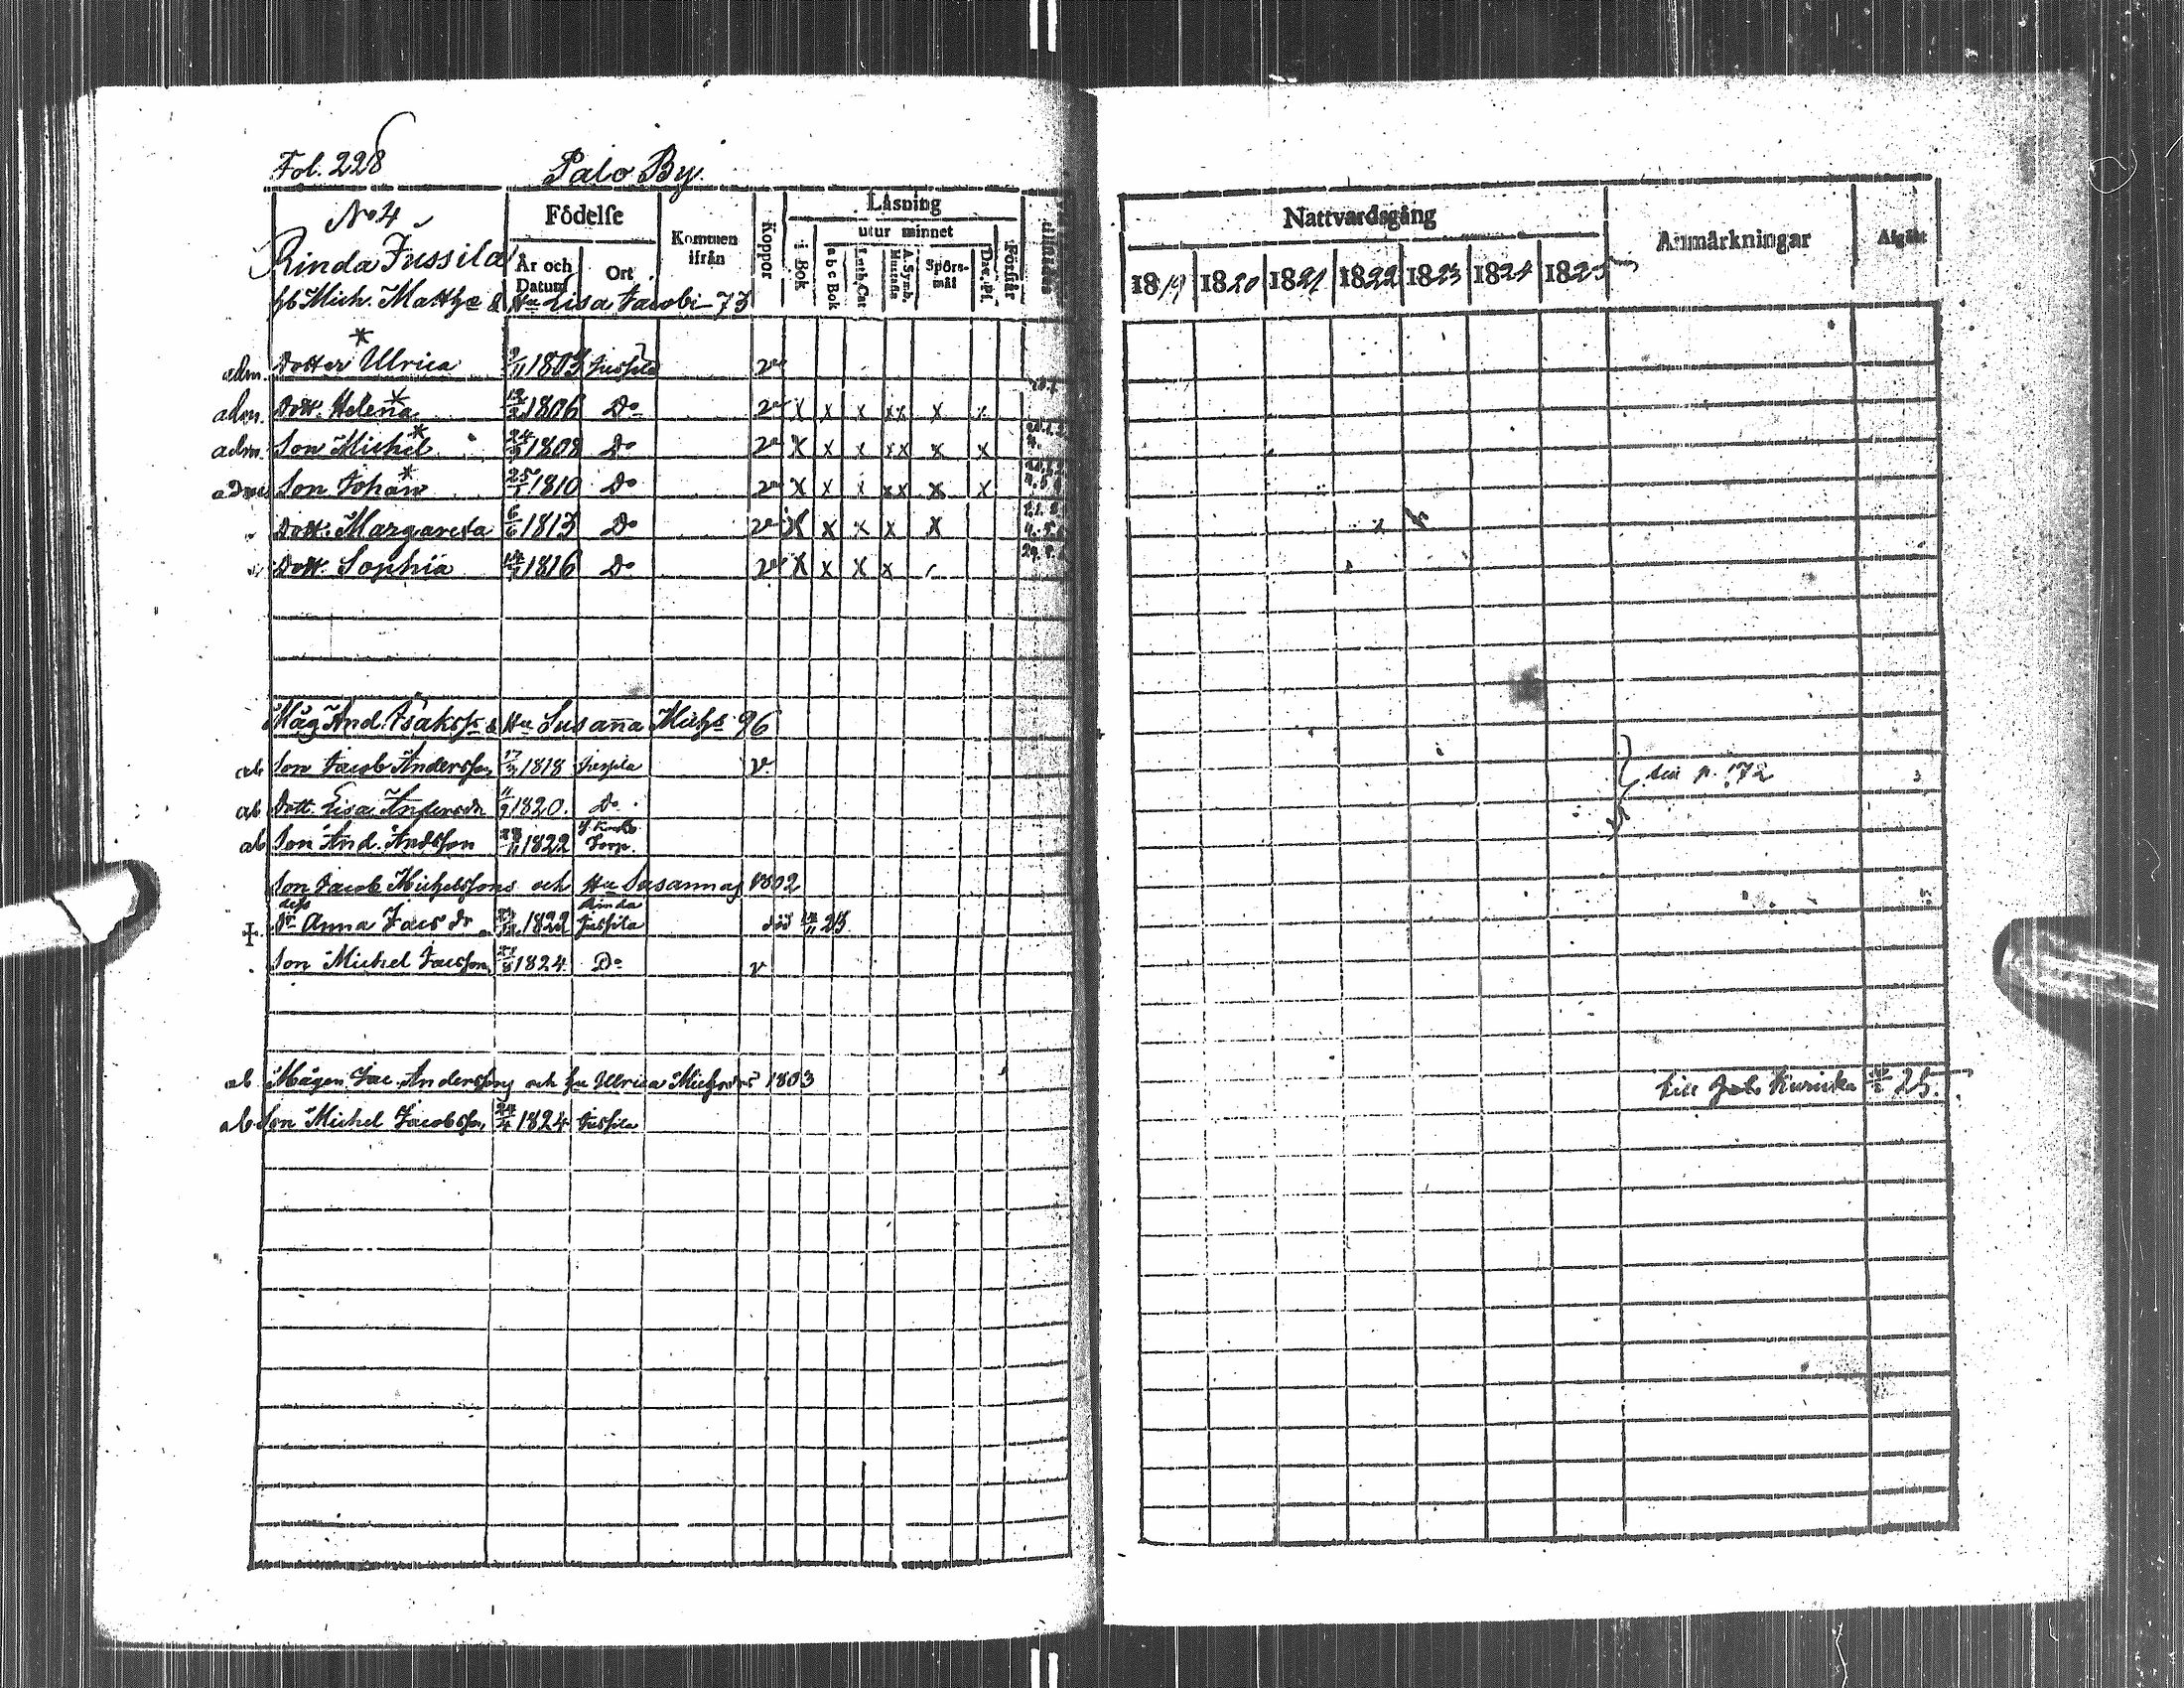 Fol. 228 Palo By.
No 4
Rinda Jussila
Födelse
År och Datum
Ort
Kommen ifrån
Koppor
Läsning
utur minnet
i Bok
a b c Bok
Luth. Cat
A. Symb.
Spörs-mål
Dav. Ps.
Förstår
hb Mich. Matthæ & Hu Lisa Jacobi 73
adm. Dotter Ulrica 9/11 1803 Jussila v
adm. Dott. Helena 1806 Do v x x x xx x x
adm. Son Michel 1808 Do v x x x xx x x
Son Johan 25/1 1810 Do v x x x xx x x
Dott. Margareta 6/6 1813 Do v x x x x x
Dott. Sophia 1816 Do v x x x x
Måg And. Isakss. & Hu Susanna Michs 96
ab Son Jacob Andersson 17/3 1818 Jussila v
ab Dott. Lisa Andersdr 11/9 1820. Do
ab Son And. Andsson 1822 Torp.
Son Jacob Michelssons och Hu Susanna 1802
dess Dr Anna Jacs dr 1822 Rinda Jussila död 25
Son Michel Jacsson 1824 Do v
ab Mågen Jac. Andersson och hu Ulrica Michsdr 1803
ab Son Michel Jacobss. 24/4 1824 Jussila
Nattvardsgång
Anmärkningar
Afgått
1819 1820 1821 1822 1823 1824 1825
p. 172
till 25.